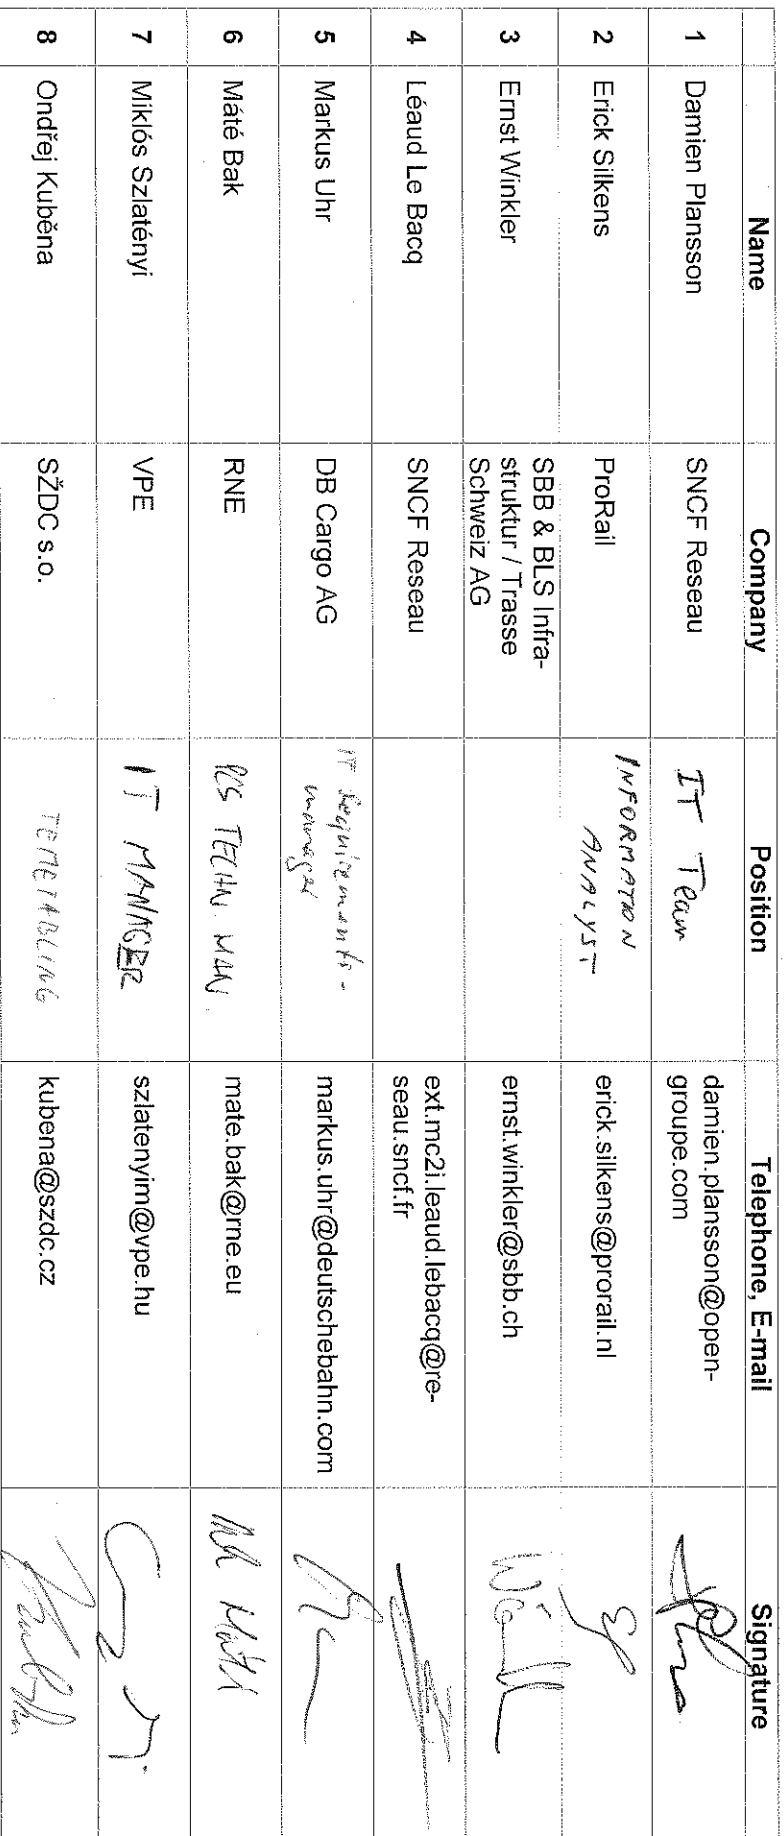 Name Company Position Telephone, E-mail Signature
1 Damien Plansson SNCF Reseau IT Team damien.plansson@open-
groupe.com
2 Erick Silkens ProRail INFORMATION
ANALYST erick.silkens@prorail.nl
3 Ernst Winkler SBB & BLS Infra-
struktur / Trasse
Schweiz AG ernst.winkler@sbb.ch
4 Léaud Le Bacq SNCF Reseau ext.mc2i.leaud.lebacq@re-
seau.sncf.fr
5 Markus Uhr DB Cargo AG IT Requirements-
manager markus.uhr@deutschebahn.com
6 Máté Bak RNE PCS TECHN. MAN. mate.bak@rne.eu
7 Miklós Szlatényi VPE IT MANAGER szlatenyim@vpe.hu
8 Ondřej Kuběna SŽDC s.o. TEMETABLING kubena@szdc.cz